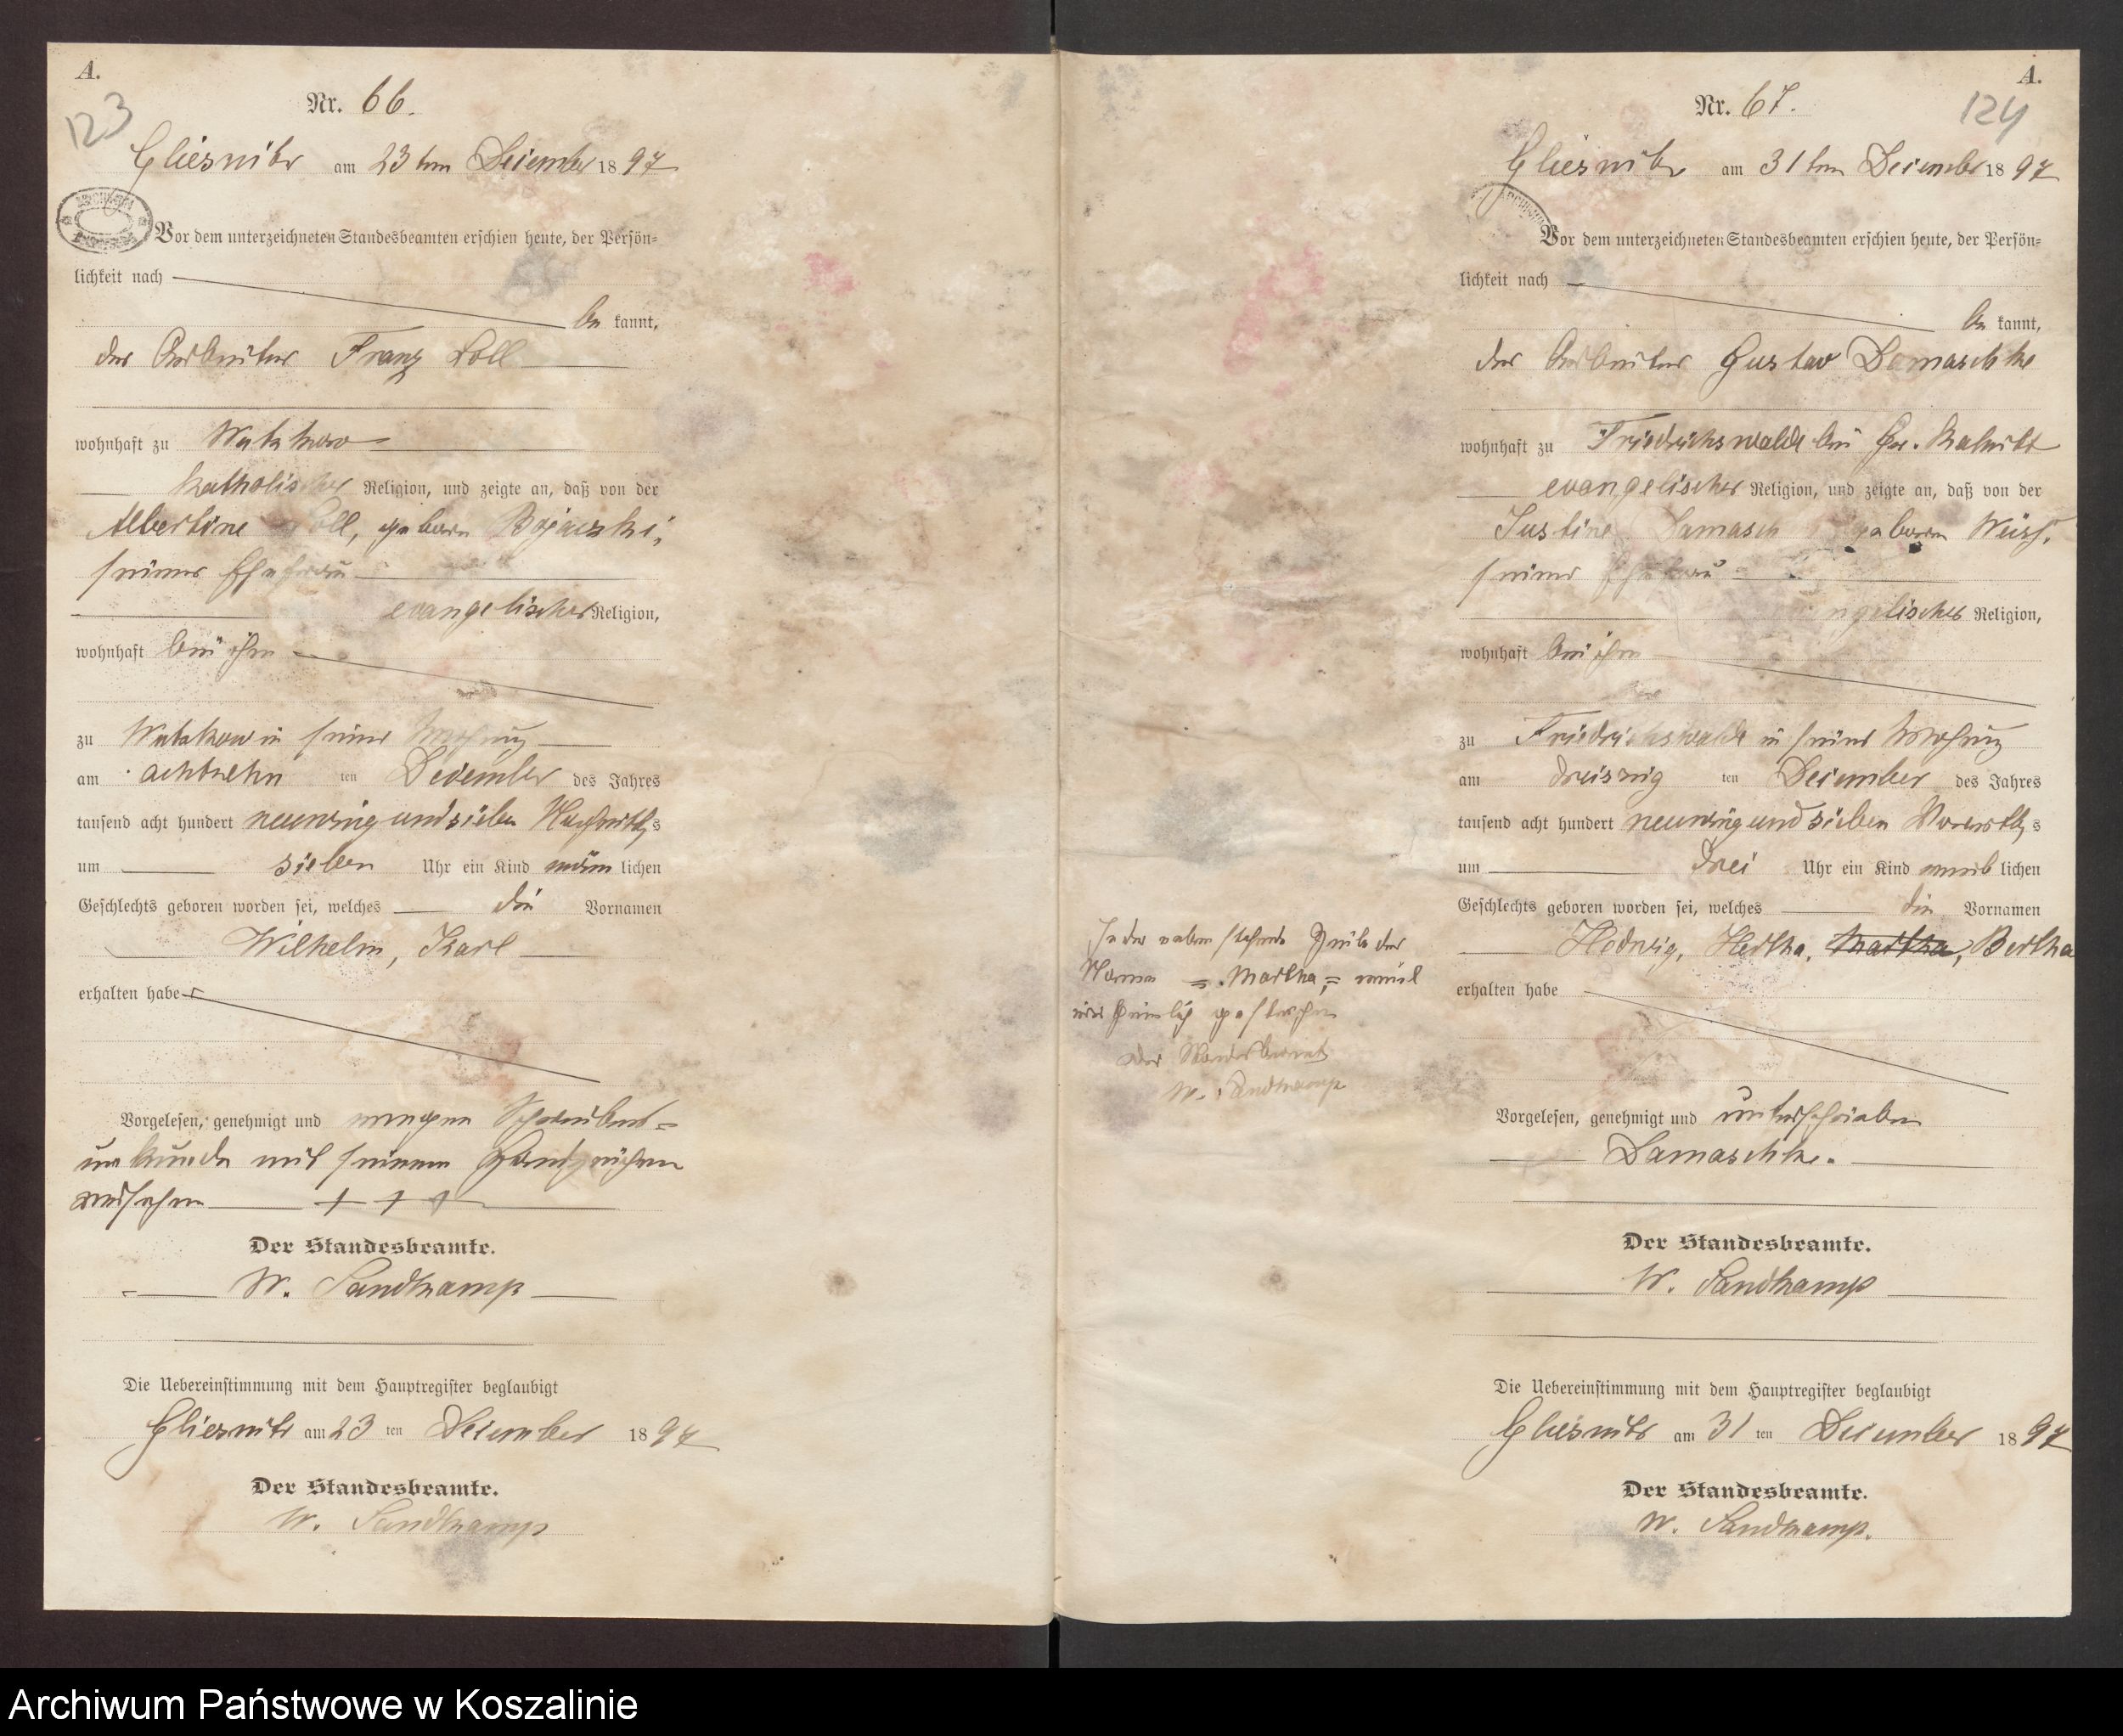 A.
Nr. 66.
123
Gliesnitz am 23 ten Dezember 1897
Vor dem unterzeichneten Standesbeamten erschien heute, der Persön=
lichkeit nach
be kannt,
der Arbeiter Franz Loll
wohnhaft zu Wutzkow
katholischer Religion, und zeigte an, daß von der
Albertine Loll, geboren
seiner Ehefrau
evangelischer Religion,
wohnhaft bei ihm
zu Wutzkow in seiner Wohnung
am achtzehn ten Dezember des Jahres
tausend acht hundert neunzig und sieben Nachmittags
um sieben Uhr ein Kind männ lichen
Geschlechts geboren worden sei, welches die Vornamen
Wilhelm, Karl
erhalten habe
Vorgelesen, genehmigt und wegen Schreibens=
unkunde mit seinem Handzeichen
versehen + + +
Der Standesbeamte.
W. Sandkamp
Die Uebereinstimmung mit dem Hauptregister beglaubigt
Gliesnitz am 23 ten Dezember 1897
Der Standesbeamte.
W. Sandkamp
A.
Nr. 67.
124
Gliesnitz am 31 ten Dezember 1897
Vor dem unterzeichneten Standesbeamten erschien heute, der Persön=
lichkeit nach
be kannt,
der Arbeiter Gustav Damaschke
wohnhaft zu Friedrichswalde bei Gr.
evangelischer Religion, und zeigte an, daß von der
Justine Damasch geboren
seiner Ehefrau
evangelischer Religion,
wohnhaft bei ihm
zu Friedrichswalde in seiner Wohnung
am dreiszig ten Dezember des Jahres
tausend acht hundert neunzig und sieben Vormittags
um drei Uhr ein Kind weib lichen
Geschlechts geboren worden sei, welches die Vornamen
Hedwig, Hertha, Martha, Bertha
erhalten habe
In der nebenstehenden Zeile der
Name = Martha, = weil
irrthümlich gestrichen
Der Standesbeamte
W. Sandkamp
Vorgelesen, genehmigt und unterschrieben
Damaschke.
Der Standesbeamte.
W. Sandkamp
Die Uebereinstimmung mit dem Hauptregister beglaubigt
Gliesnitz am 31 ten Dezember 1897
Der Standesbeamte.
W. Sandkamp.
Archiwum Państwowe w Koszalinie